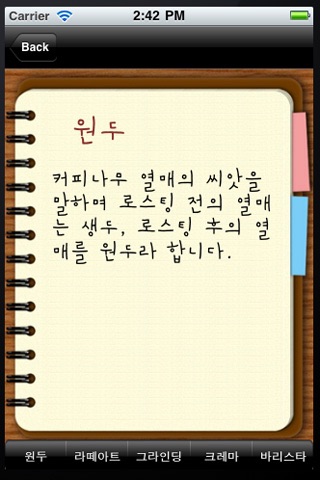 Carrier 2:42 PM
Back
원두
커피나무 열매의 씨앗을
말하며 로스팅 전의 열매
는 생두, 로스팅 후의 열
매를 원두라 합니다.
원두 라떼아트 그라인딩 크레마 바리스타